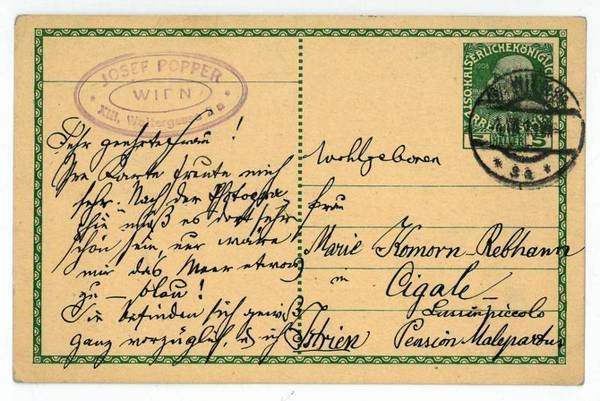 JOSEF POPPER
WIEN
XIII. Woltergasse 3a
K.K. ... KAISERLICHEKÖNIGLICHE
5
XIII WIEN
* 3a *
Sehr geehrte Frau !
Ihre Karte freute mich
sehr. Nach der Photogr.
hin muß es dort sehr
schön sein, nur wäre
mir das Meer etwas
zu – blau !
Sie befinden sich gewiß
ganz vorzüglich, u. ich
Wohlgeboren
Frau
Marie Komorn-Rebhann
in
Cigale
Lussinpiccolo
Istrien Pension Malepartus